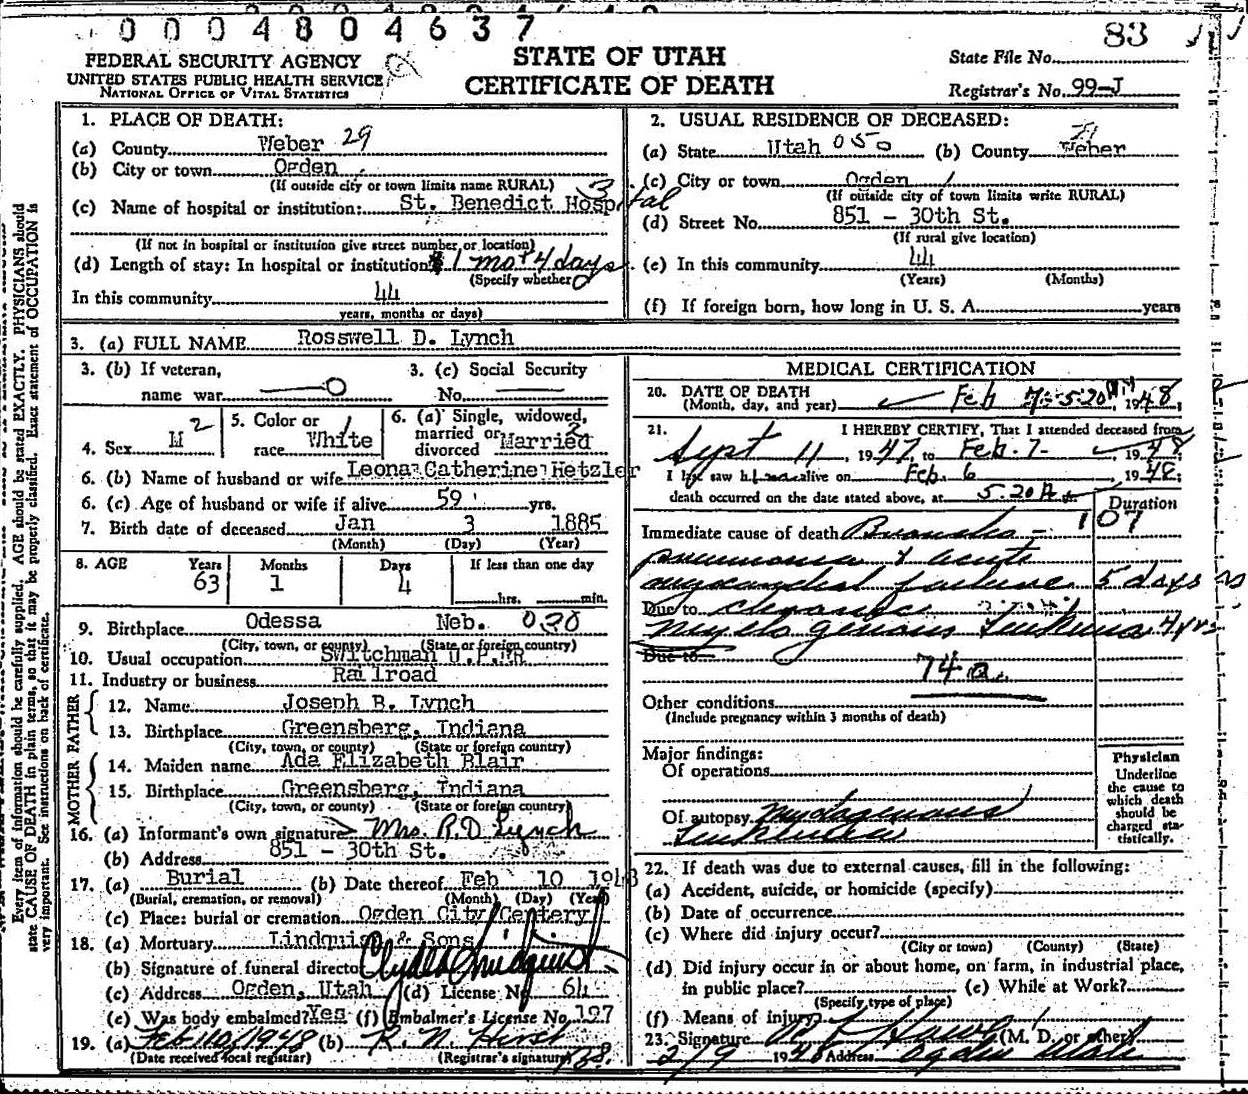 0004804637
83
FEDERAL SECURITY AGENCY
UNITED STATES PUBLIC HEALTH SERVICE
NATIONAL OFFICE OF VITAL STATISTICS
STATE OF UTAH
CERTIFICATE OF DEATH
State File No.
Registrar's No. 99-J
Every item of information should be carefully supplied. AGE should be stated EXACTLY. PHYSICIANS should
state CAUSE OF DEATH in plain terms, so that it may be properly classified. Exact statement of OCCUPATION is
very important. See instructions on back of certificate.
1. PLACE OF DEATH:
(a) County Weber 29
(b) City or town Ogden
(If outside city or town limits name RURAL)
3
(c) Name of hospital or institution: St. Benedict Hospital
(If not in hospital or institution give street number or location)
(d) Length of stay: In hospital or institution 1 mo + 4 days
(Specify whether
In this community 44
years, months or days)
2. USUAL RESIDENCE OF DECEASED:
(a) State Utah 050 (b) County Weber
(c) City or town Ogden
(If outside city of town limits write RURAL)
(d) Street No. 851 - 30th St.
(If rural give location)
(e) In this community 44
(Years) (Months)
(f) If foreign born, how long in U. S. A. years
3. (a) FULL NAME Rosswell D. Lynch
3. (b) If veteran, name war O
3. (c) Social Security No.
4. Sex M 2
5. Color or race White 1
6. (a) Single, widowed, married or divorced Married 2
6. (b) Name of husband or wife Leona Catherine Hetzler
6. (c) Age of husband or wife if alive 59 yrs.
7. Birth date of deceased Jan 3 1885
(Month) (Day) (Year)
8. AGE Years Months Days If less than one day
63 1 4 hrs. min.
9. Birthplace Odessa Neb. 030
(City, town, or county) (State or foreign country)
10. Usual occupation Switchman U.P.RR
11. Industry or business Railroad
FATHER
12. Name Joseph B. Lynch
13. Birthplace Greensberg, Indiana
(City, town, or county) (State or foreign country)
MOTHER
14. Maiden name Ada Elizabeth Blair
15. Birthplace Greensberg, Indiana
(City, town, or county) (State or foreign country)
16. (a) Informant's own signature Mrs. R.D Lynch
(b) Address 851 - 30th St.
17. (a) Burial (b) Date thereof Feb 10 1948
(Burial, cremation, or removal) (Month) (Day) (Year)
(c) Place: burial or cremation Ogden City Cemtery
18. (a) Mortuary Lindquist & Sons
(b) Signature of funeral director Clyde Lindquist
(c) Address Ogden, Utah (d) License No. 64
(e) Was body embalmed? Yes (f) Embalmer's License No. 197
19. (a) Feb 10, 1948 (b) R. N. Hirst
(Date received local registrar) (Registrar's signature)
MEDICAL CERTIFICATION
20. DATE OF DEATH
(Month, day, and year) Feb 7-5:20 AM, 1948;
21. I HEREBY CERTIFY, That I attended deceased from
Sept 11, 1947, to Feb. 7- 1948;
I last saw him alive on Feb. 6 1948;
death occurred on the date stated above, at 5:20 A
Duration
107
Immediate cause of death Broncho-
pneumonia & acute
myocardial failure 5 days
Due to chronic
myelogenous Leukemia 4 yrs
Due to
74a
Other conditions
(Include pregnancy within 3 months of death)
Major findings:
Of operations
Of autopsy myelogenous
Leukemia
Physician
Underline
the cause to
which death
should be
charged sta-
tistically.
22. If death was due to external causes, fill in the following:
(a) Accident, suicide, or homicide (specify)
(b) Date of occurrence
(c) Where did injury occur?
(City or town) (County) (State)
(d) Did injury occur in or about home, on farm, in industrial place,
in public place? (e) While at Work?
(Specify type of place)
(f) Means of injury
23. Signature (M. D. or other)
2/9 1948 Address Ogden Utah